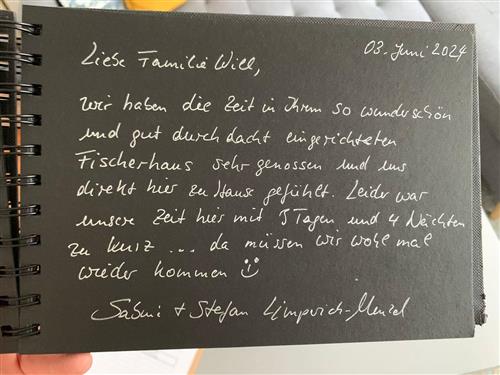 03. Juni 2024
Liebe Familie Will,
wir haben die Zeit in Ihrem so wunderschön
und gut durchdacht eingerichteten
Fischerhaus sehr genossen und uns
direkt hier zu Hause gefühlt. Leider war
unsere Zeit hier mit 5 Tagen und 4 Nächten
zu kurz ... da müssen wir wohl mal
wieder kommen ☺
Sabine + Stefan